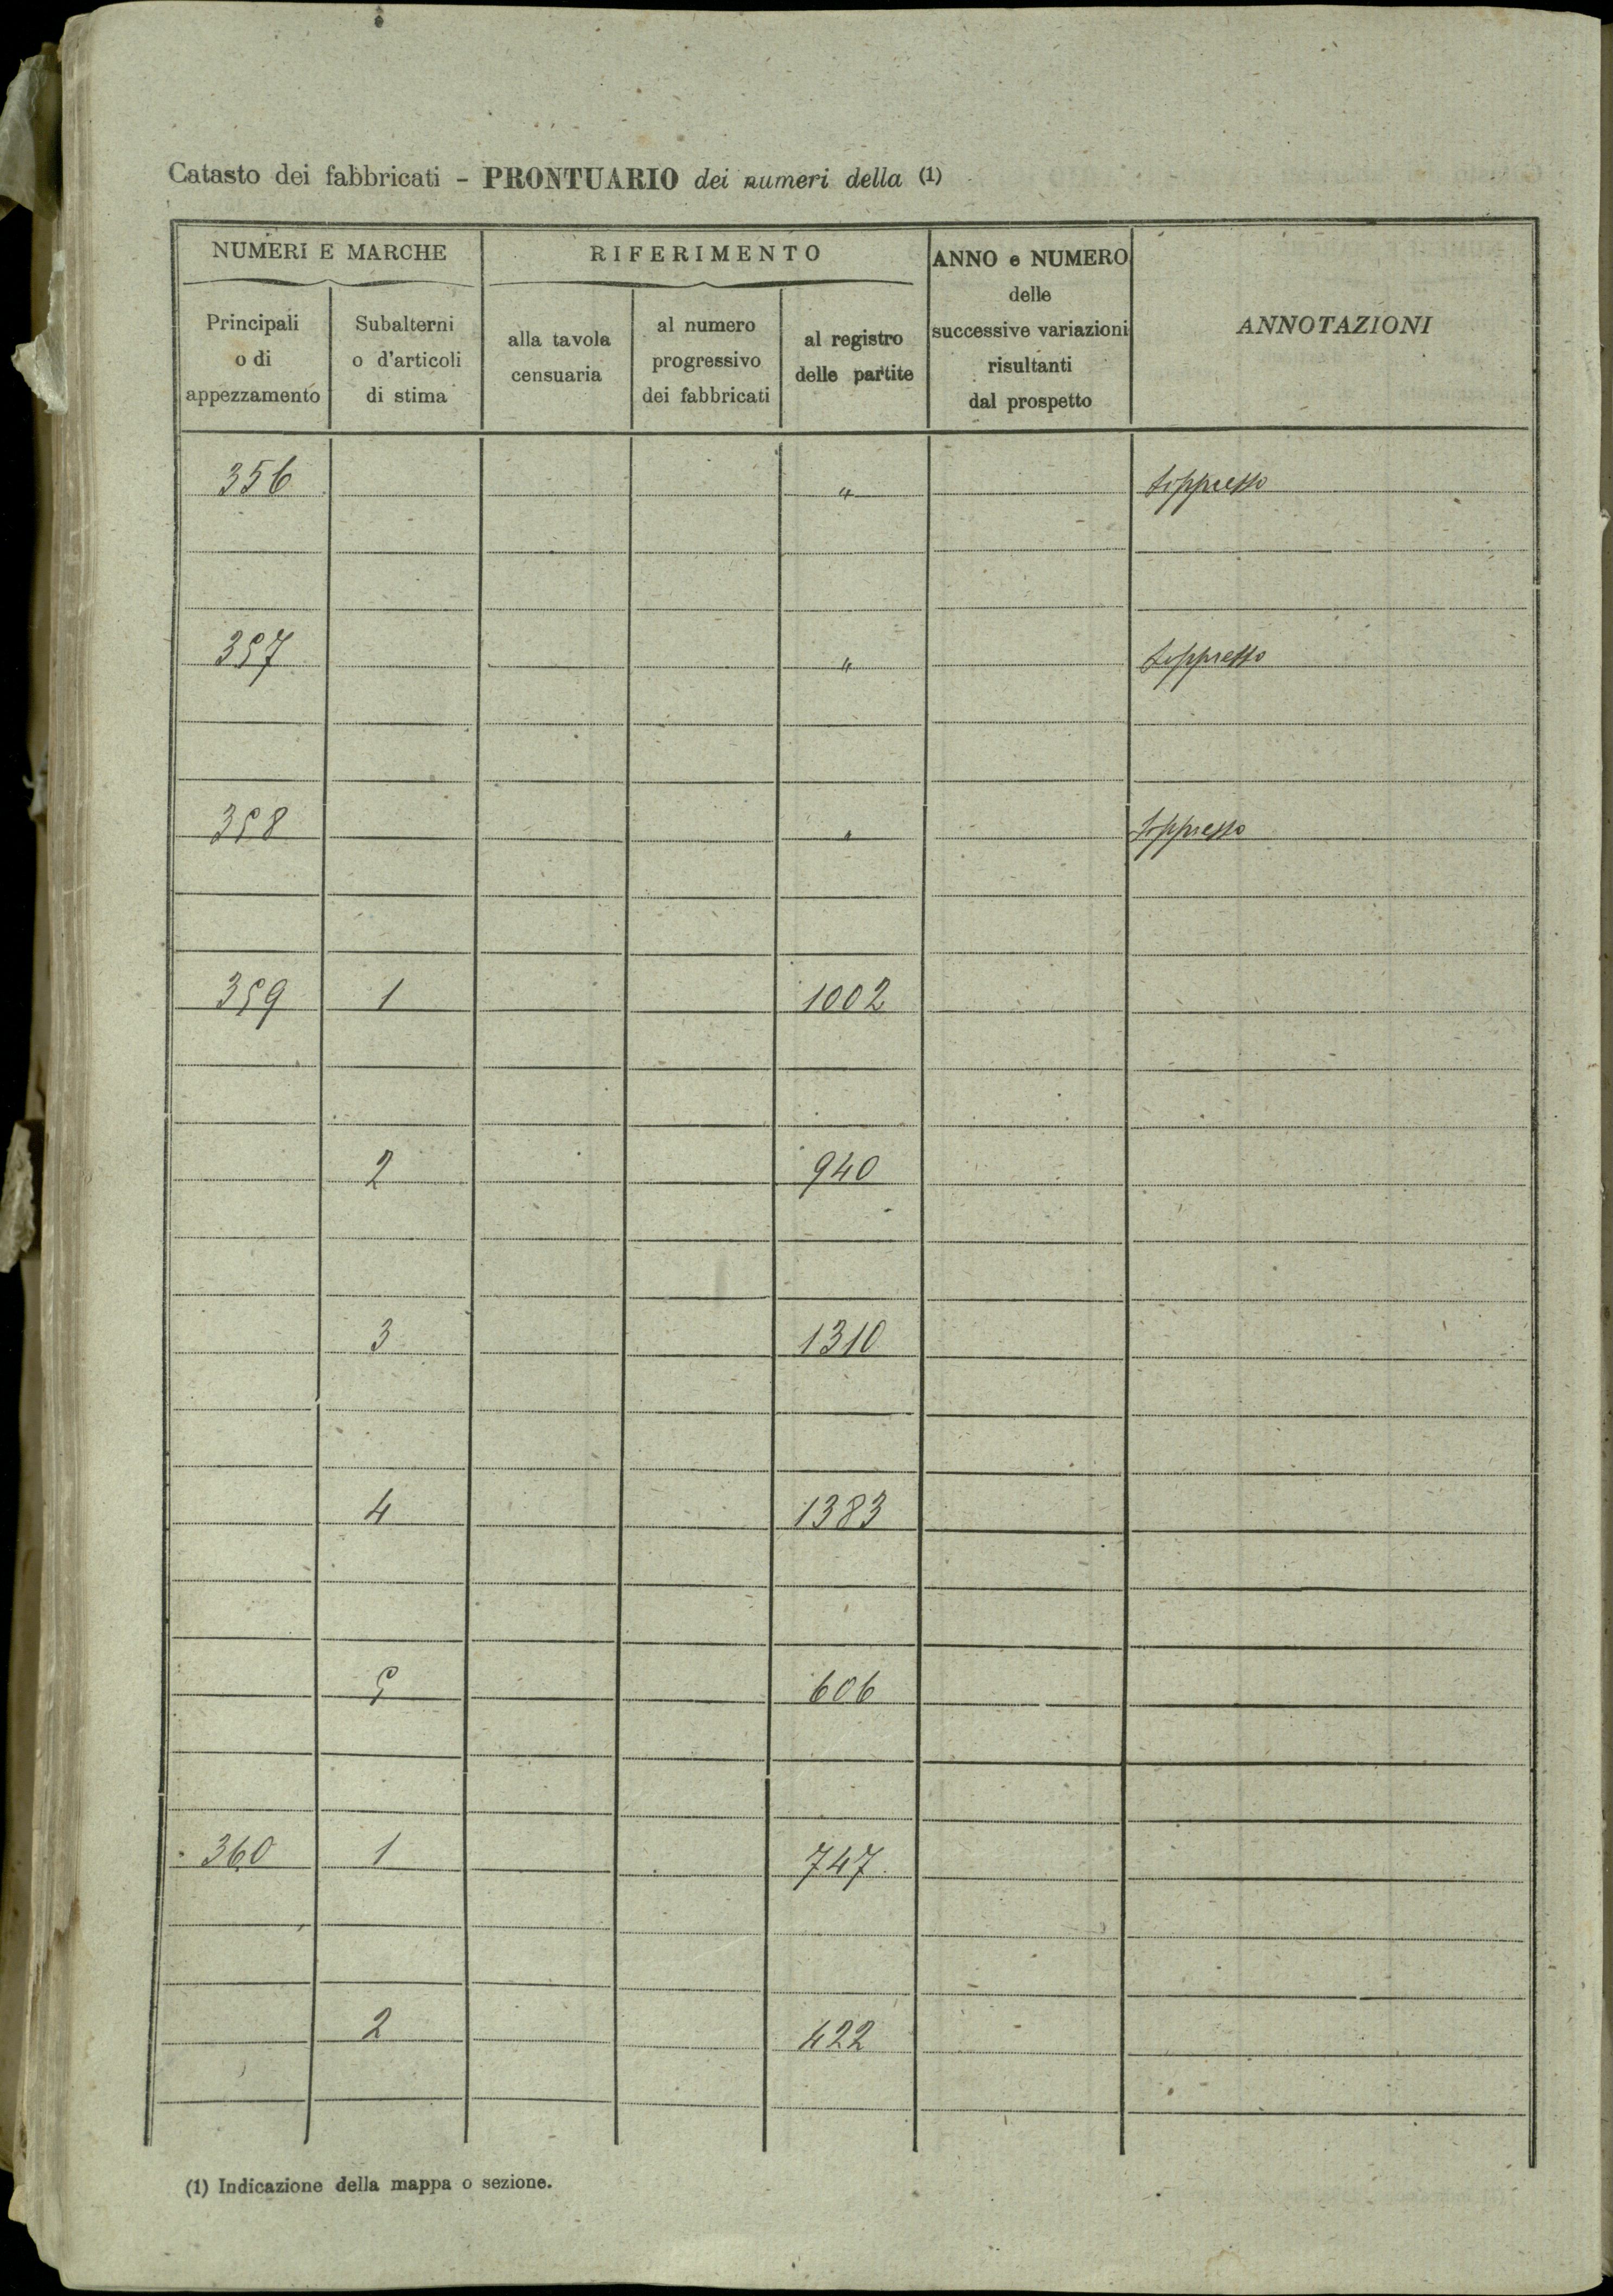 Catasto dei fabbricati - PRONTUARIO dei numeri della (1)
NUMERI E MARCHE
RIFERIMENTO
ANNO e NUMERO
delle
successive variazioni
risultanti
dal prospetto
ANNOTAZIONI
Principali
o di
appezzamento
Subalterni
o d'articoli
di stima
alla tavola
censuaria
al numero
progressivo
dei fabbricati
al registro
delle partite
356 " soppresso
357 " soppresso
358 " soppresso
359 1 1002
2 940
3 1310
4 1383
5 606
360 1 747
2 422
(1) Indicazione della mappa o sezione.